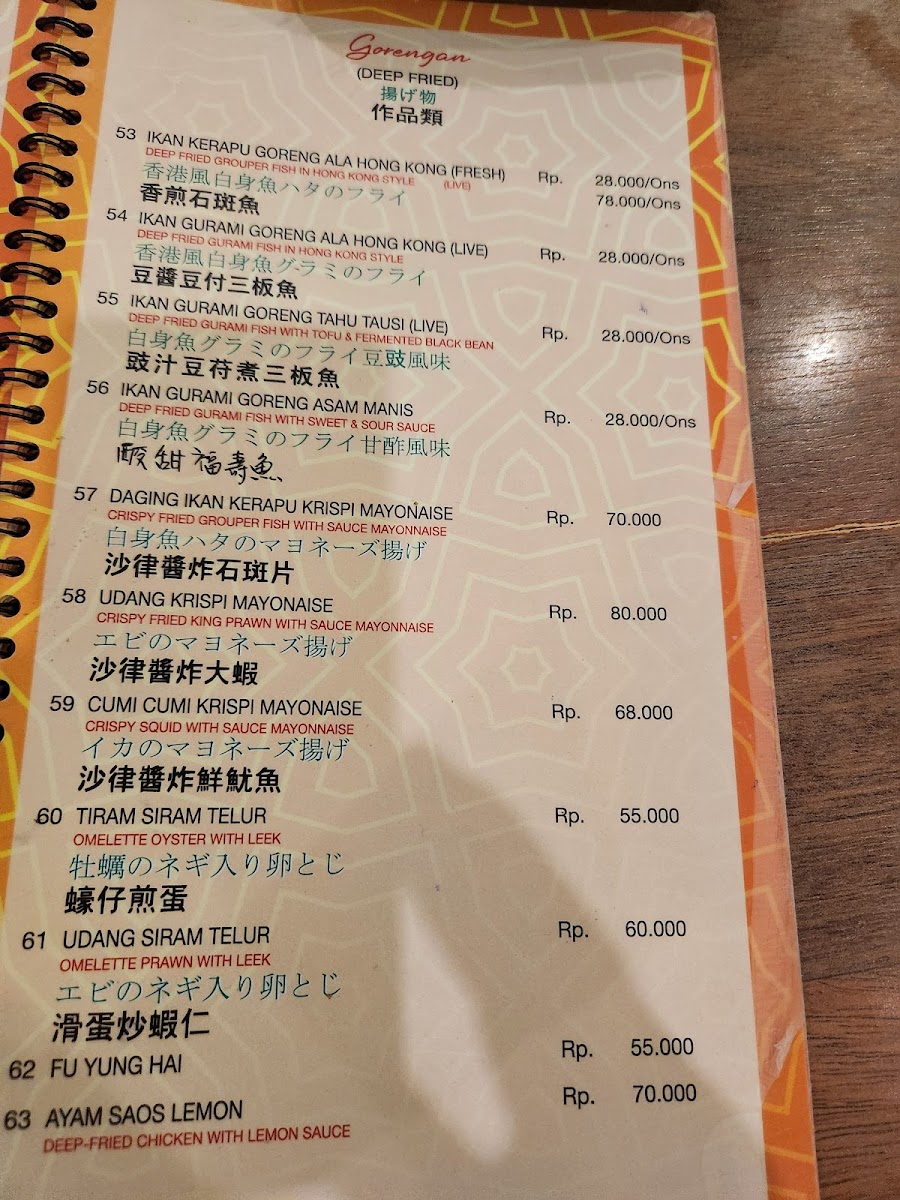 Gorengan
(DEEP FRIED)
揚げ物
作品類
53 IKAN KERAPU GORENG ALA HONG KONG (FRESH) Rp. 28.000/Ons
DEEP FRIED GROUPER FISH IN HONG KONG STYLE (LIVE) 78.000/Ons
香港風白身魚ハタのフライ
香煎石斑魚
54 IKAN GURAMI GORENG ALA HONG KONG (LIVE) Rp. 28.000/Ons
DEEP FRIED GURAMI FISH IN HONG KONG STYLE
香港風白身魚グラミのフライ
豆醬豆付三板魚
55 IKAN GURAMI GORENG TAHU TAUSI (LIVE) Rp. 28.000/Ons
DEEP FRIED GURAMI FISH WITH TOFU & FERMENTED BLACK BEAN
白身魚グラミのフライ豆豉風味
豉汁豆苻煮三板魚
56 IKAN GURAMI GORENG ASAM MANIS Rp. 28.000/Ons
DEEP FRIED GURAMI FISH WITH SWEET & SOUR SAUCE
白身魚グラミのフライ甘酢風味
酸甜福壽魚
57 DAGING IKAN KERAPU KRISPI MAYONAISE Rp. 70.000
CRISPY FRIED GROUPER FISH WITH SAUCE MAYONNAISE
白身魚ハタのマヨネーズ揚げ
沙律醬炸石斑片
58 UDANG KRISPI MAYONAISE Rp. 80.000
CRISPY FRIED KING PRAWN WITH SAUCE MAYONNAISE
エビのマヨネーズ揚げ
沙律醬炸大蝦
59 CUMI CUMI KRISPI MAYONAISE Rp. 68.000
CRISPY SQUID WITH SAUCE MAYONNAISE
イカのマヨネーズ揚げ
沙律醬炸鮮魷魚
60 TIRAM SIRAM TELUR Rp. 55.000
OMELETTE OYSTER WITH LEEK
牡蠣のネギ入り卵とじ
蠔仔煎蛋
61 UDANG SIRAM TELUR Rp. 60.000
OMELETTE PRAWN WITH LEEK
エビのネギ入り卵とじ
滑蛋炒蝦仁
62 FU YUNG HAI Rp. 55.000
63 AYAM SAOS LEMON Rp. 70.000
DEEP-FRIED CHICKEN WITH LEMON SAUCE